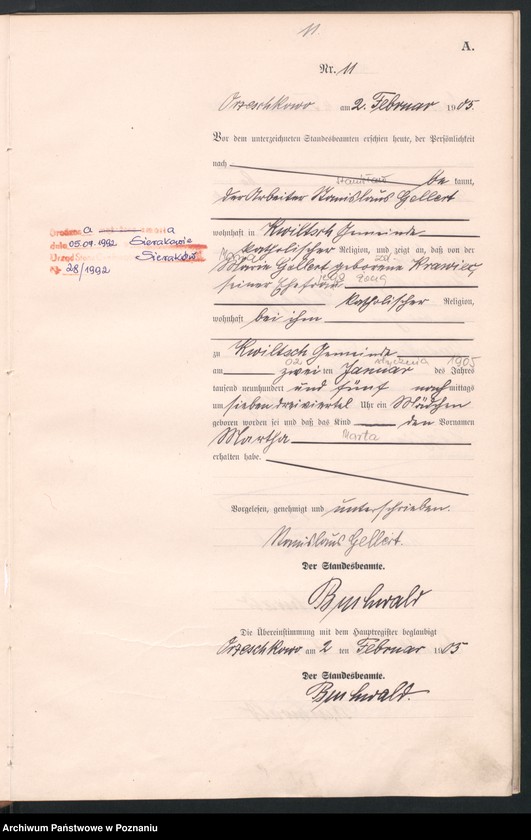 11
A.
Nr. 11
Orzeschkowo am 2. Februar 1905.
Vor dem unterzeichneten Standesbeamten erschien heute, der Persönlichkeit
nach
Stanisław be kannt,
der Arbeiter Stanislaus Gellert
wohnhaft in Kwiltsch Gemeinde
katholischer Religion, und zeigt an, daß von der
Maria zd
Marie Gellert geborene Krawiec,
seiner Ehefrau jego żony
katholischer Religion,
wohnhaft bei ihm
zu Kwiltsch Gemeinde
02 stycznia 1905
am zwei ten Januar des Jahres
tausend neunhundert und fünf nach mittags
um sieben dreiviertel Uhr ein Mädchen
geboren worden sei und daß das Kind den Vornamen
Martha Marta
erhalten habe.
a
dnia 05.09.1992 Sierakowie
Urząd Sieraków
Nr 28/1992
Vorgelesen, genehmigt und unterschrieben.
Stanislaus Gellert.
Der Standesbeamte.
Buchwald
Die Übereinstimmung mit dem Hauptregister beglaubigt
Orzeschkowo am 2 ten Februar 1905
Der Standesbeamte.
Buchwald.
Archiwum Państwowe w Poznaniu